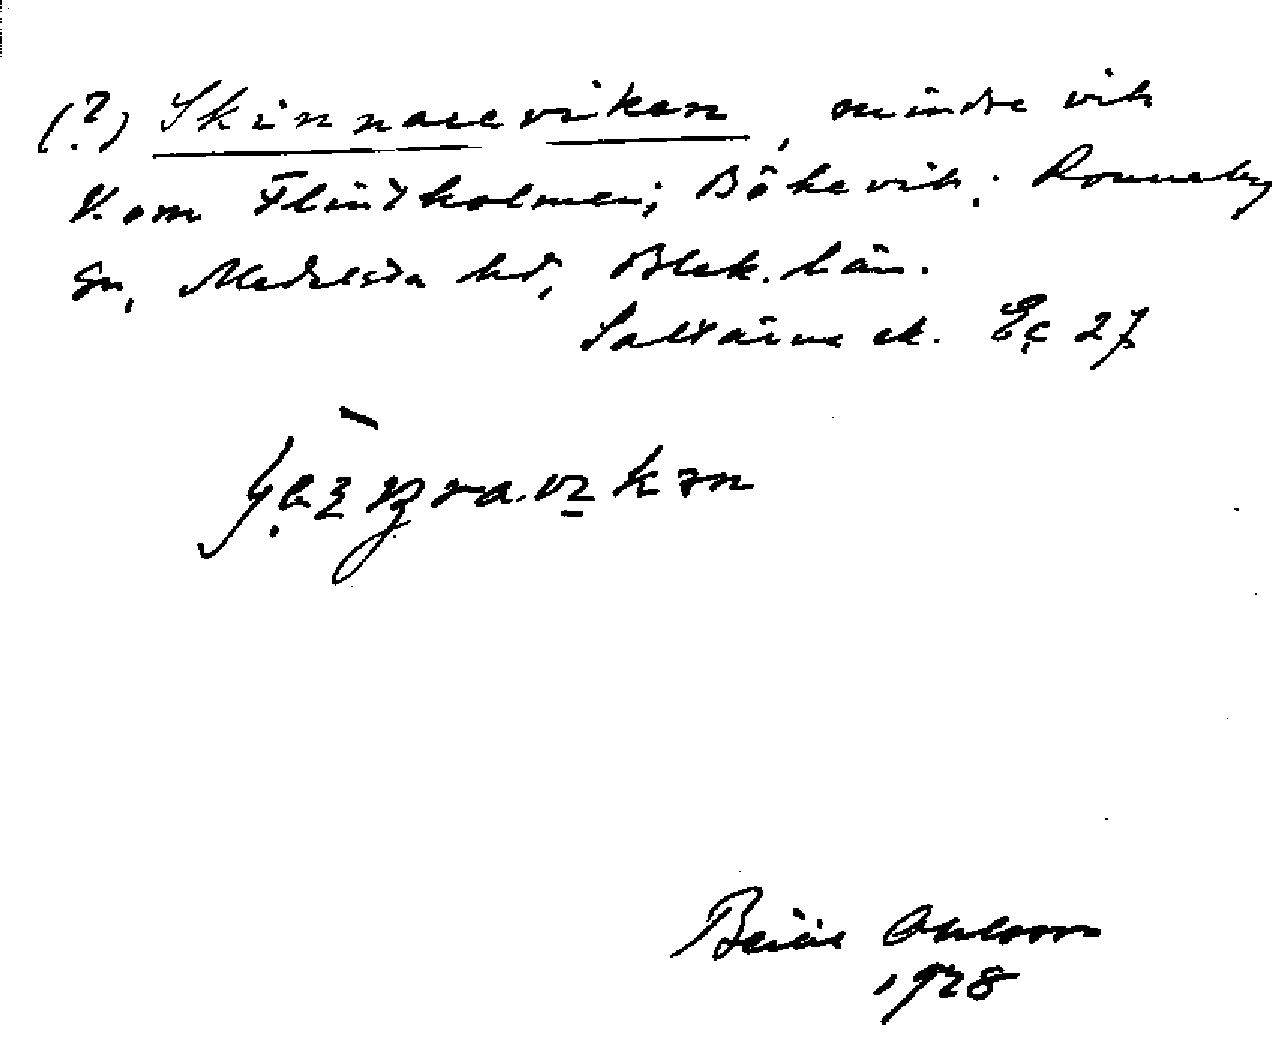 (?) Skinnareviken, mindre vik
V. om Flindholmen; Bökevik. Ronneby
sn, Medelsta hd, Blek. län.
Saltsjöns ek. Ec 27
Bertil Ohlsson
1928